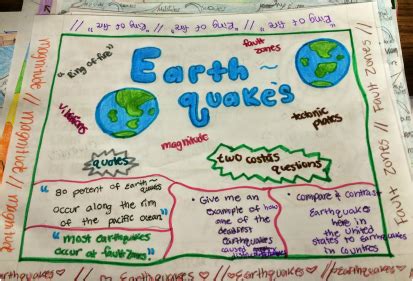 "Ring of fire" // "Ring of fire" // "Ring of fire" //
magnitude // magnitude // magnitude
fault Zones // fault Zones
fault
zones
"ring of fire"
Earth~
quakes
tectonic
plates
magnitude
quotes
two costa's
questions
" 80 percent of earth~
quakes
occur along the rim
of the pacific ocean"
"most earthquakes
occur at fault zones"
• Give me an
example of how
one of the
deadliest
earthquakes
caused
• compare & contrast
Earthquake
here in
the united
states to Earthquakes
in countries
earthquakes♡ // Earthquakes♡ // Earthquakes♡ // earthquakes♡